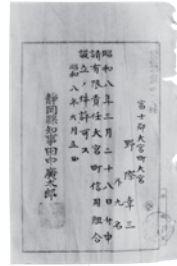 富士郡大宮町大宮
野際章三
外九名
昭和八年三月二十八日付申
請有限責任大宮町信用組合
設立ノ件許可ス
昭和八年六月五日
静岡縣知事田中廣太郎